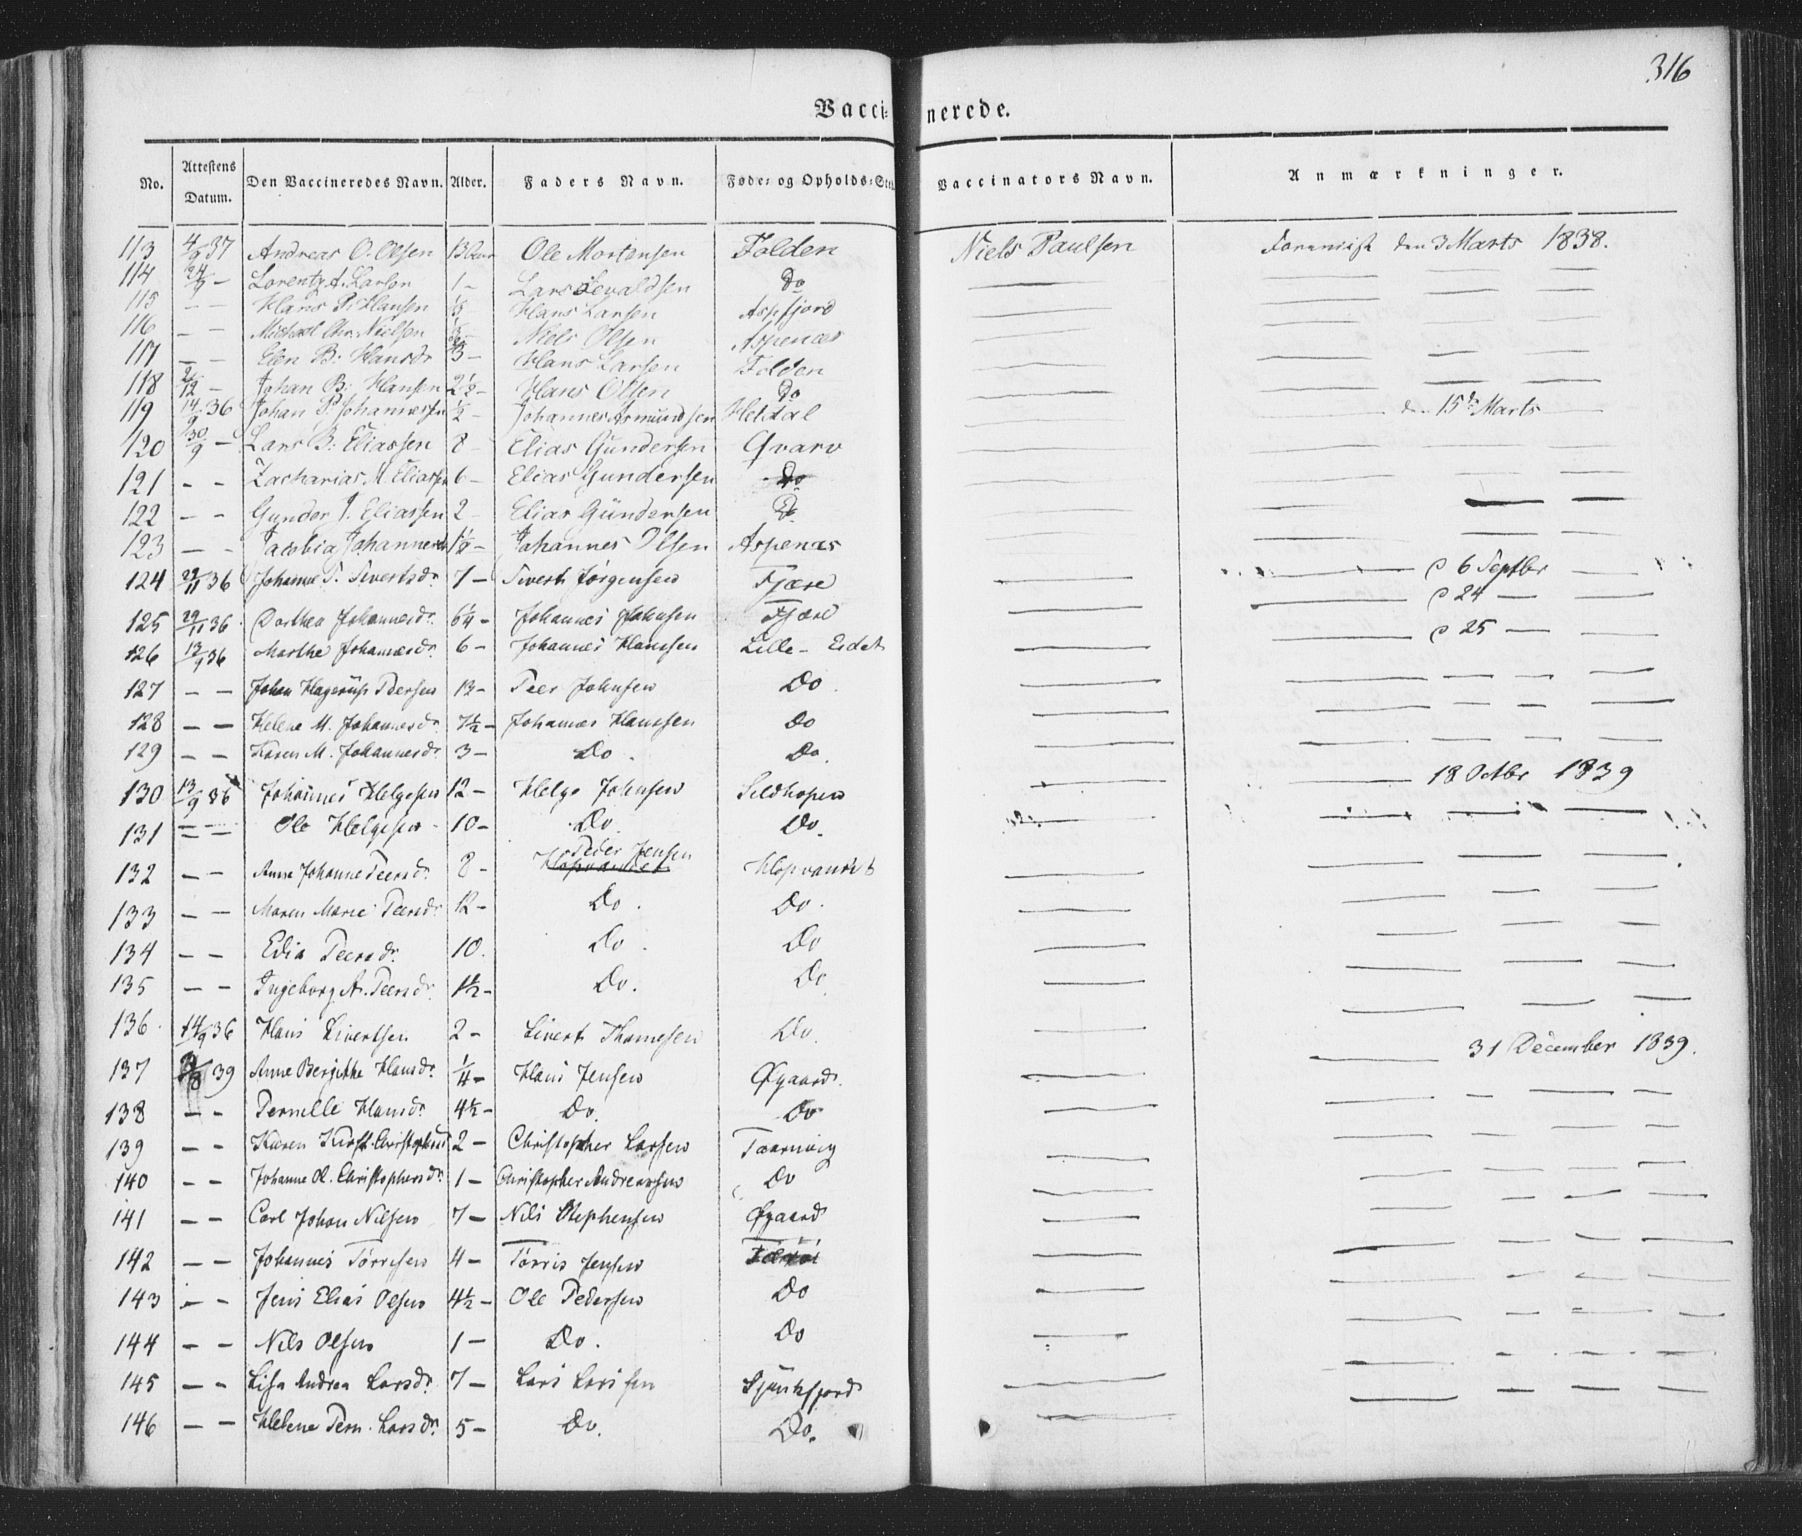 316
Vaccinerede.
No. Attestens Datum. Den Vaccineredes Navn. Alder. Faders Navn. Føde- og Opholds-Sted Vaccinators Navn. Anmærkninger.
113 4/9 37 Andreas O. Olsen 13 Ole Mortensen Folden Niels Paulsen den 3 Marts 1838.
114 24/9 — Lorentz A. Larsen 1 — Lars Do — —
115 — — Hans P. Hansen Hans Larsen Aspfjord — —
116 — — Michael Chr. Nielsen Niels Olsen Aspenæs — —
117 — — Elen B. Hansdr 3 — Hans Larsen Folden — — —
118 — Johan B. Hansen 2½ — Hans Olsen Do — — —
119 14/9 36 Johan P. Johannessen ½ — Johannes Asmundsen Heldal — d. 15de Marts —
120 30/9 — Lars B. Eliassen 8 Elias Gundersen Qvarv — — —
121 — — Zacharias M. Eliassen 6 — Elias Gundersen Do — — —
122 — — Gunder J. Eliassen 2 Elias Gundersen Do — — —
123 — — Jacobia Johannesdr 1½ — Johannes Olsen Aspenæs — — —
124 29/11 36 Johanne P. Sivertsdr. 7 — Sivert Jørgensen Fjære — — 6 Septbr —
125 29/11 36 Dorthea Johannesdr. 6¼ — Johannes Johnsen Fjære — — 24 —
126 13/9 36 Marthe Johannesdr. 6 — Johannes Hanssen Lille-Eidet — — 25 —
127 — — Johan Hagerup Pedersen 12 — Peer Johnsen Do. — — — —
128 — — Helene M. Johannesdr. 7½ — Johannes Hanssen Do — — — —
129 — — Karen M. Johannesdr 3 — Do. Do. — — — —
130 13/9 36 Johannes Helgesen 12 — Helge Johnsen Seldhopen — — 18 Octbr 1839
131 — — Ole Helgesen 10 — Do. Do. — — — —
132 — — Anne Johanne Peersdr. 8 — Peder Jensen Hopvandet Hopvandet — — — —
133 — — Maren Marie Peersdr. 12 — Do. Do. — — — —
134 — — Edia Peersdr. 10. Do. Do — — — —
135 — — Ingeborg A. Peersdr. 1½ — Do. Do — — — —
136. 14/9 36 Hans Sivertsen 2 — Sivert Thomesen Do. — — — —
137 /8 39 Anne Bergithe Hansdr. ¼ — Hans Jensen Øgaard. — — 31 December 1839.
138 — — Pernille Hansdr. 4½ — Do. Do — — — —
139 — — Karen Kirst. Christophersdr 2 — Christopher Larsen Taarnvig — — — —
140 — — Johanne Ol. Christophersdr. 1 — Christopher Andreassen Do — — — —
141 — — Carl Johan Nilsen 7 — Nils Stephensen Øgaard — — — —
142 — — Johannes Tørrisen 4 — Tørris Jensen — — — —
143 — — Jens Elias Olsen 4½ — Ole Pedersen Do — — — —
144 — — Nils Olsen 1 — Do. Do — — — —
145 — — Lisa Andrea Larsdr. 7 — Lars Larssen Sjunkfjord — — — —
146 — — Helene Pern. Larsdr. 5 — Do. Do. — — — —